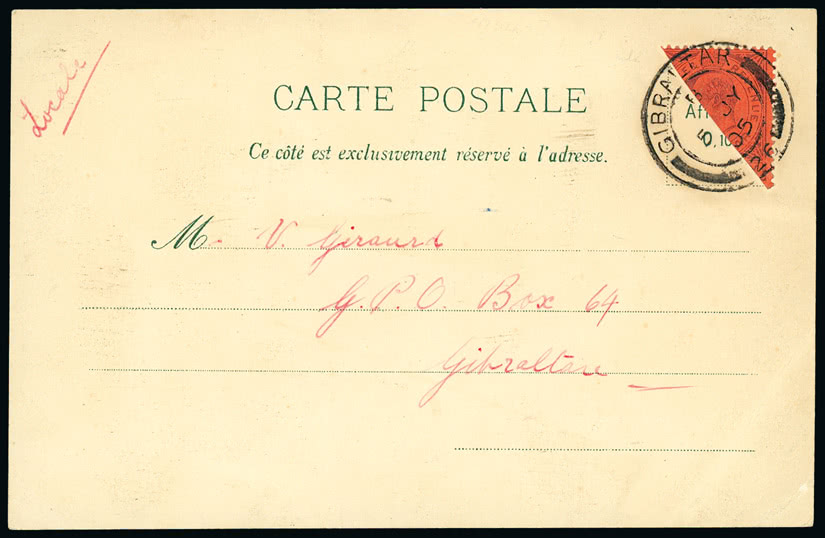 Locale
CARTE POSTALE
Ce côté est exclusivement réservé à l'adresse.
GIBRALTAR
05
0,10
M. V. Giraurd
G. P. O. Box 64
Gibraltar